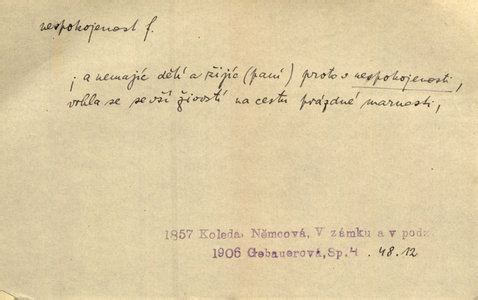 nespokojenost f.
; a nemajíc dětí a žijíc (paní) proto v nespokojenosti,
vrhla se se vší živostí na cestu prázdné marnosti,
1857 Koleda. Němcová, V zámku a v podz
1906 Gebauerová, Sp. 4 . 48.12